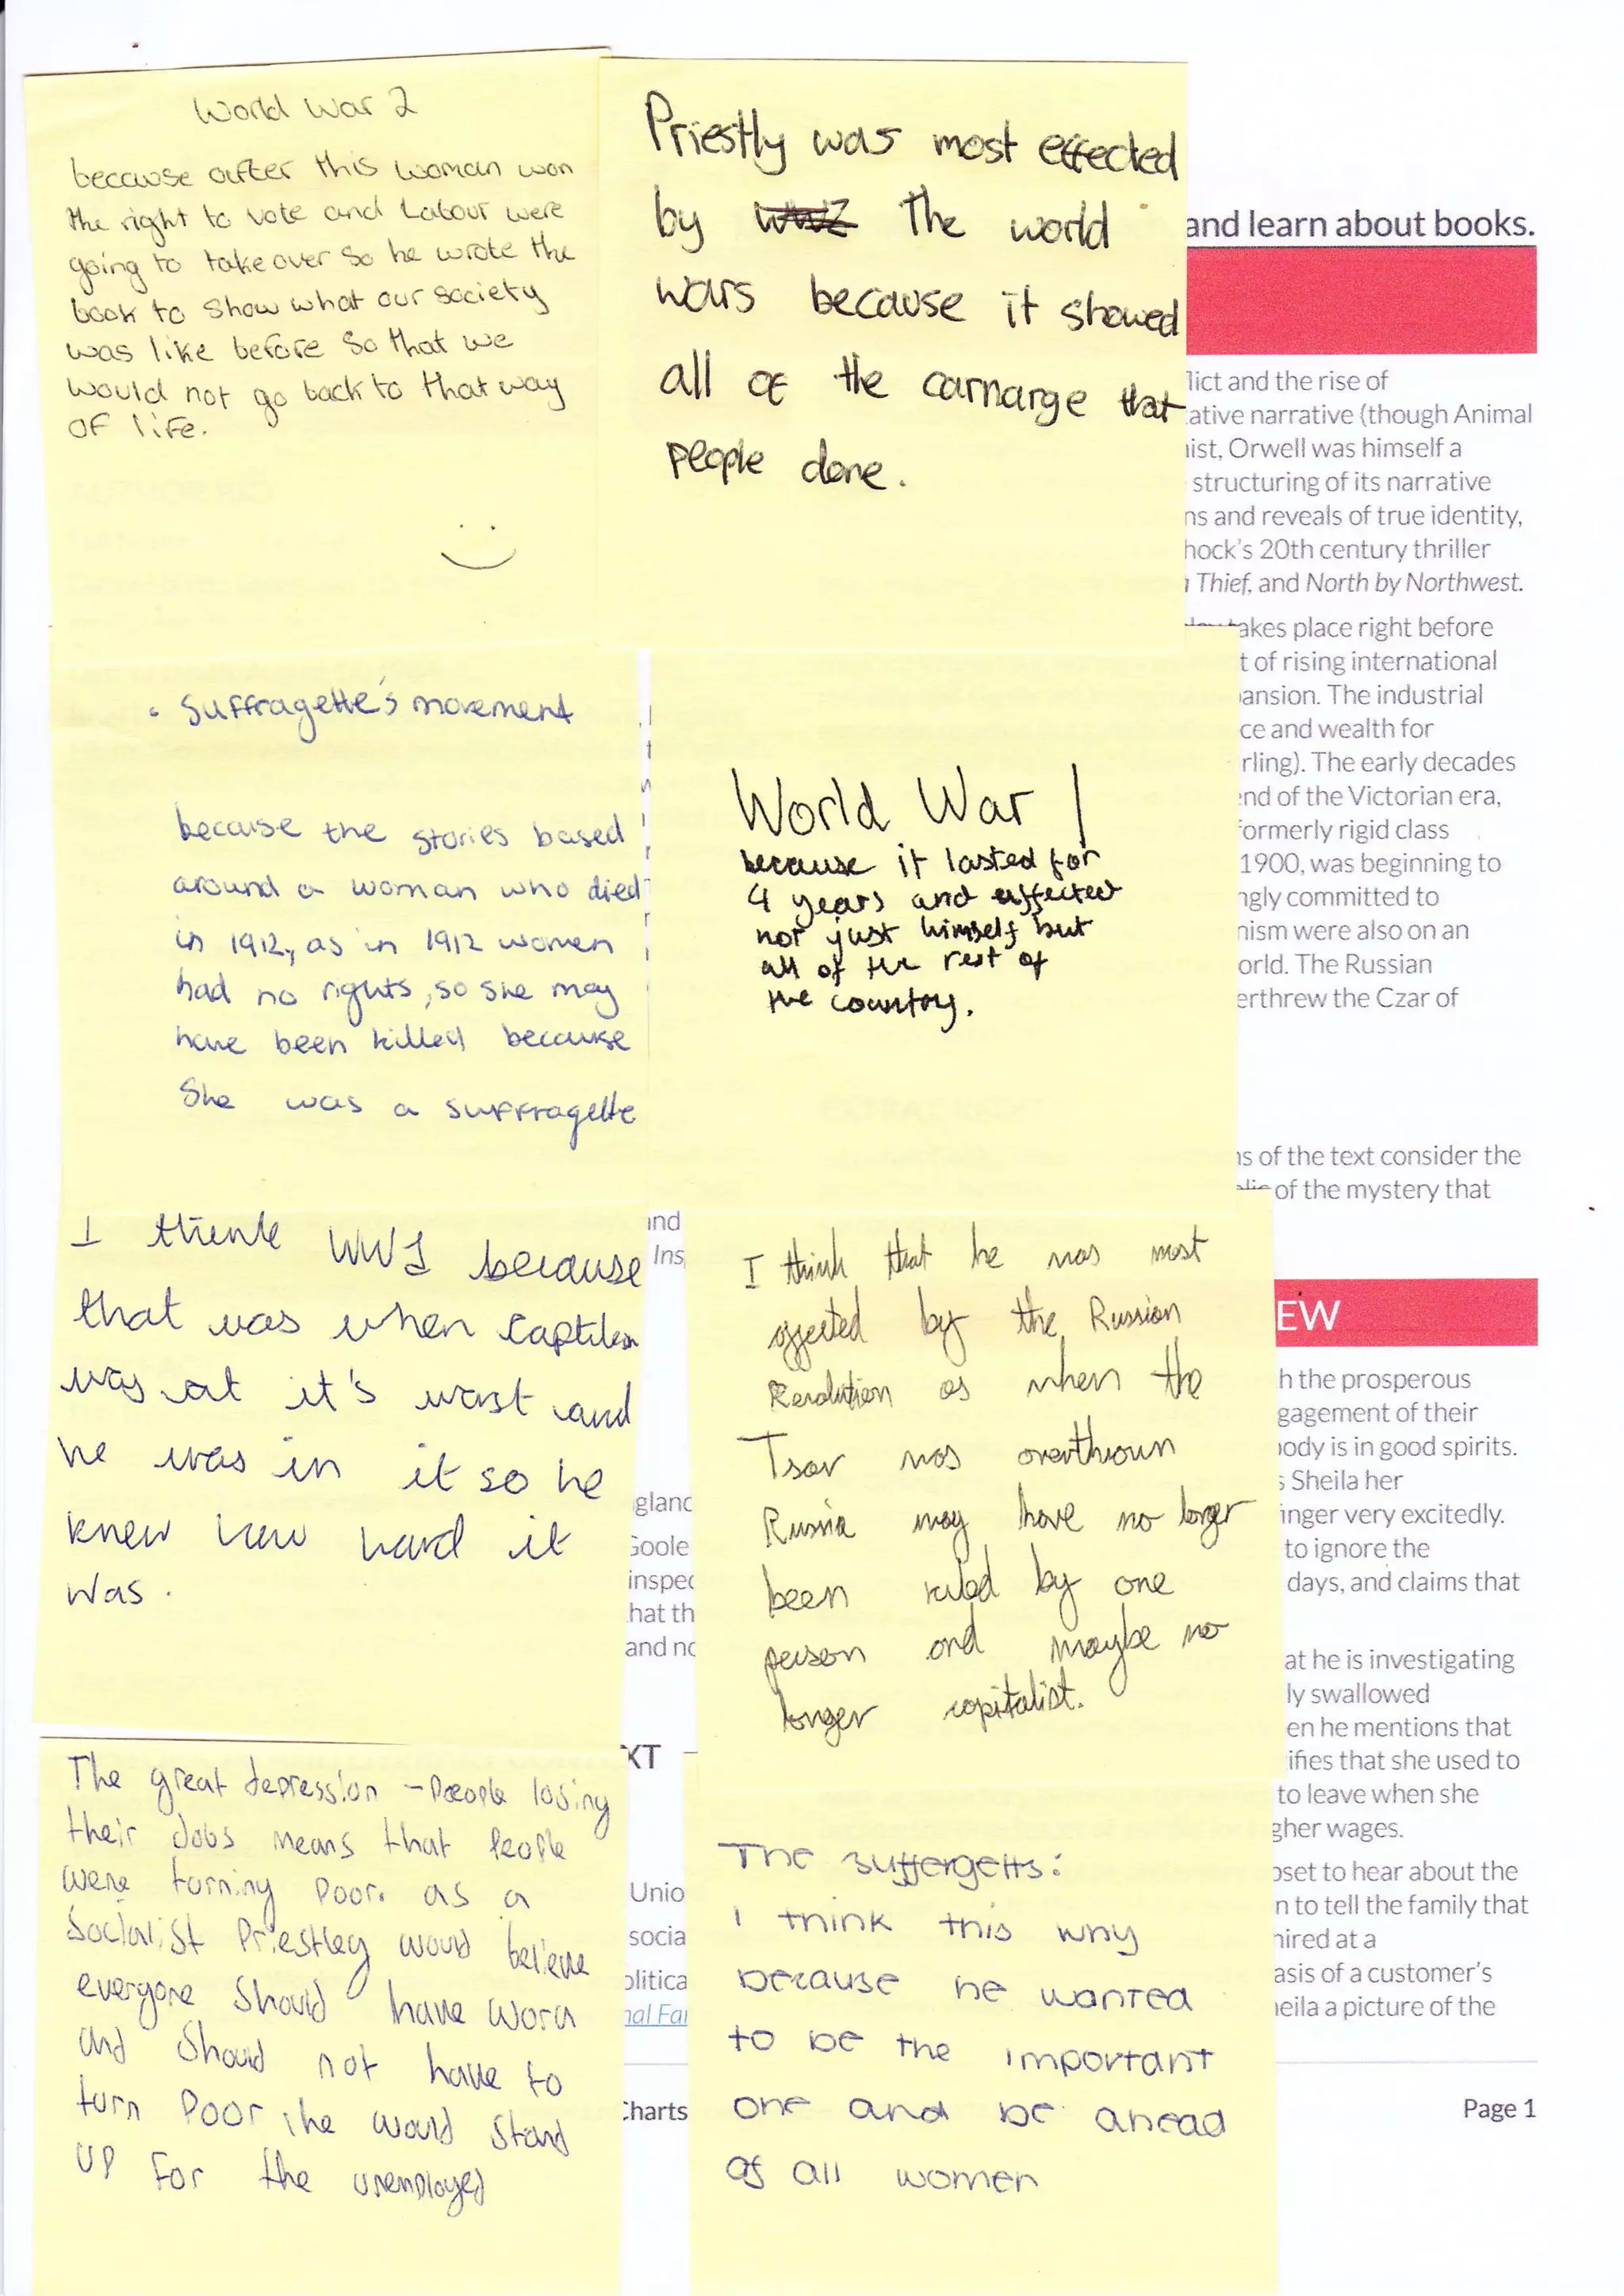 World War 2
because after this woman won
the right to vote and Labour were
going to take over so he wrote the
book to show what our society
was like before so that we
would not go back to that way
OF life.
Priestly was most effected
by The world
wars because it showed
all of the carnarge that
people done.
• Suffragette's movement
because the stories based
around a woman who died
in 1912, as in 1912 women
had no rights, so she may
have been killed because
She was a suffragette
World War 1
because it lasted for
4 years and affected
not just himself but
all of the rest of
the country.
I think WW1 because
that was when
was at it's worst and
he was in it so he
knew how hard it
was.
I think that he was most
affected by the Russian
Revolution as when the
Tsar was overthrown
Russia may have no longer
been ruled by one
person and maybe no
longer capitalist.
The great depression - People losing
their Jobs means that People
were turning poor. as a
Socialist Priestley would believe
everyone should have work
and should not have to
turn Poor, he would stand
up for the unemployed
The suffergetts:
I think this why
because he wanted
to be the important
one and be ahead
of all women
and learn about books.
lict and the rise of
ative narrative (though Animal
ist, Orwell was himself a
structuring of its narrative
ns and reveals of true identity,
hock's 20th century thriller
Thief, and North by Northwest.
akes place right before
t of rising international
ansion. The industrial
ce and wealth for
rling). The early decades
end of the Victorian era,
formerly rigid class
1900, was beginning to
ngly committed to
nism were also on an
orld. The Russian
erthrew the Czar of
ns of the text consider the
of the mystery that
and
Ins
EW
h the prosperous
gagement of their
ody is in good spirits.
s Sheila her
inger very excitedly.
to ignore the
days, and claims that
at he is investigating
ly swallowed
en he mentions that
ifies that she used to
to leave when she
gher wages.
oset to hear about the
n to tell the family that
hired at a
asis of a customer's
heila a picture of the
gland
Goole
inspec
hat th
and no
XT
Unio
socia
olitica
nal Far
Charts
Page 1